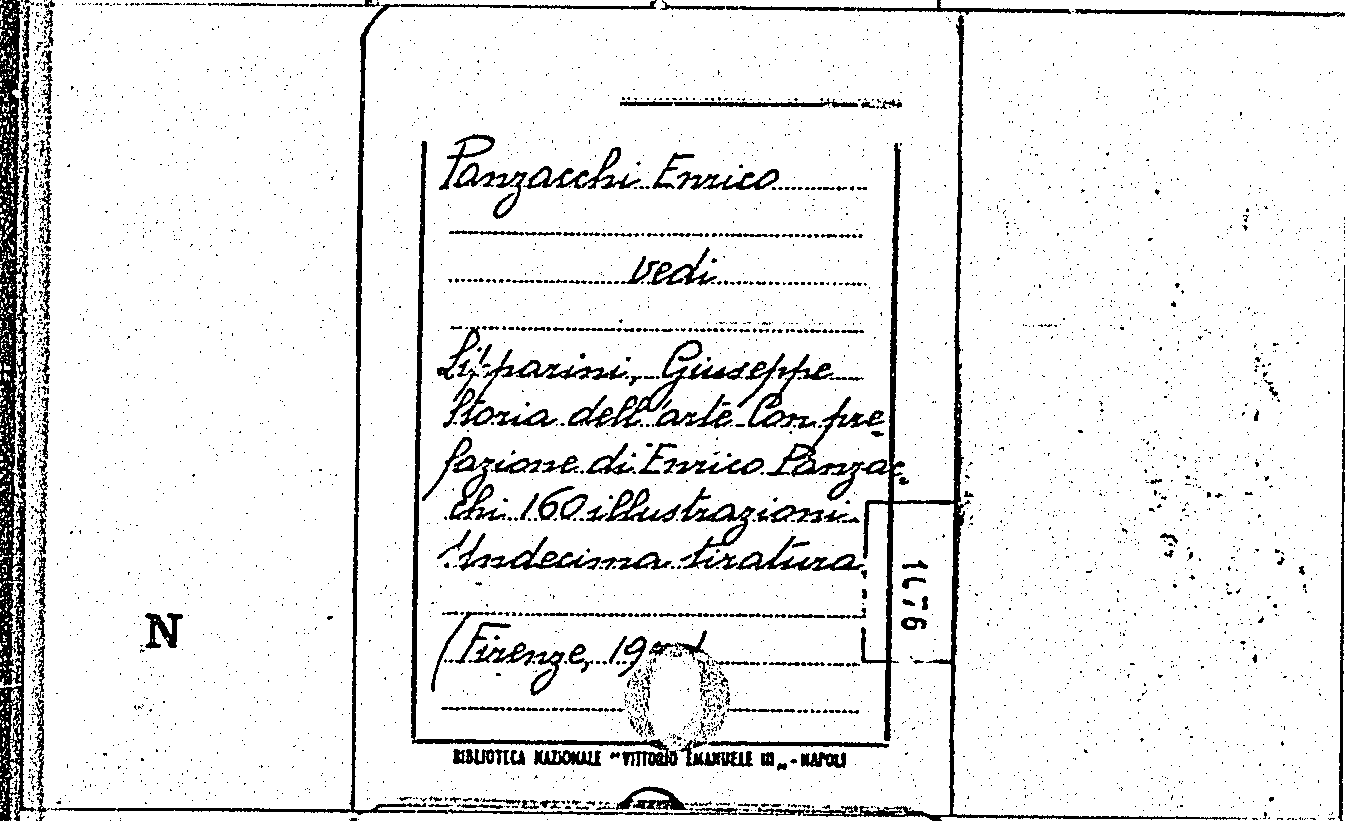 Panzacchi Enrico
vedi
Lipparini, Giuseppe
Storia dell'arte Con pre-
fazione di Enrico Panzac-
chi 160 illustrazioni.
Undecima tiratura
(Firenze,
1476
N
BIBLIOTECA NAZIONALE "VITTORIO EMANUELE III„ - NAPOLI